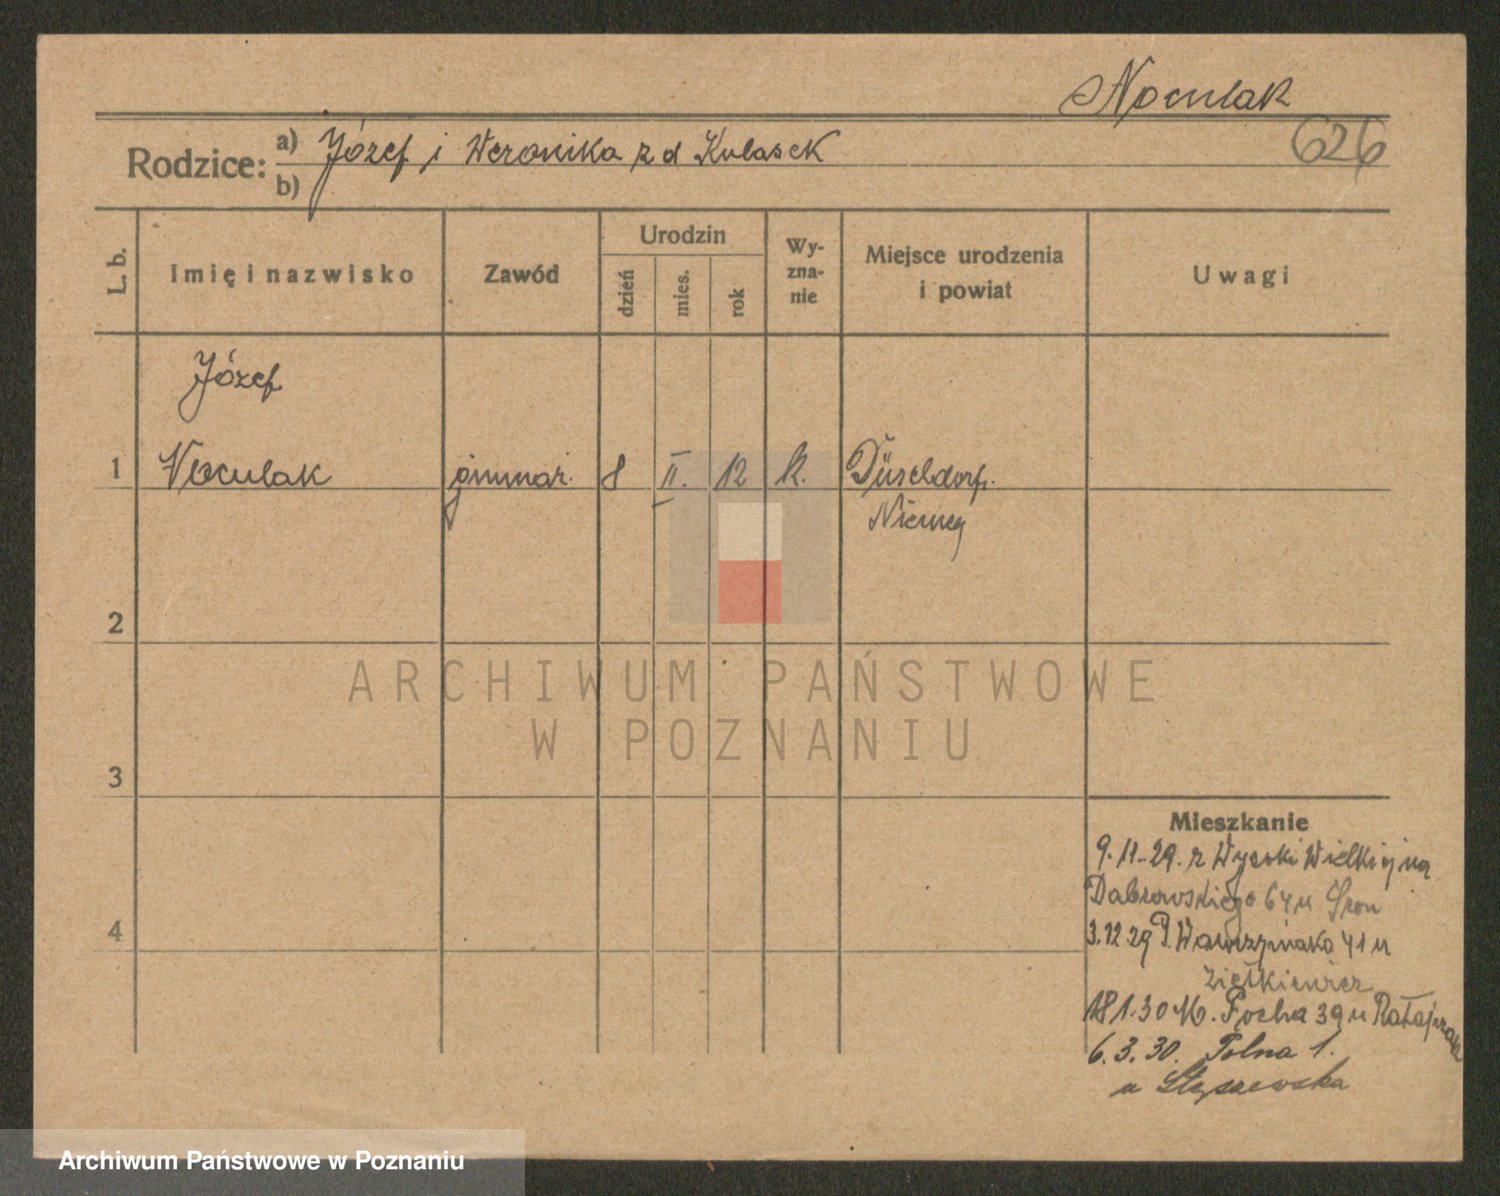 Noculak
626
Rodzice: a) Józef i Weronika z d Kulasek
b)
L. b.
Imię i nazwisko
Zawód
Urodzin
dzień
mies.
rok
Wy-
zna-
nie
Miejsce urodzenia
i powiat
Uwagi
Józef
1 Noculak gimnaz. 8 II. 12 k. Düseldorf.
Niemcy
2
3
4
ARCHIWUM PAŃSTWOWE
W POZNANIU
Mieszkanie
9.11-29. z Wysoki Wielkiej na
Dabrowskiego 64 u
3.12 29 P. Wawrzyniaka 41 u
Ziętkiewicz
18 1.30 M. Focha 39 u Ratajczak
6.3.30. Polna 1.
u Styszewska
Archiwum Państwowe w Poznaniu